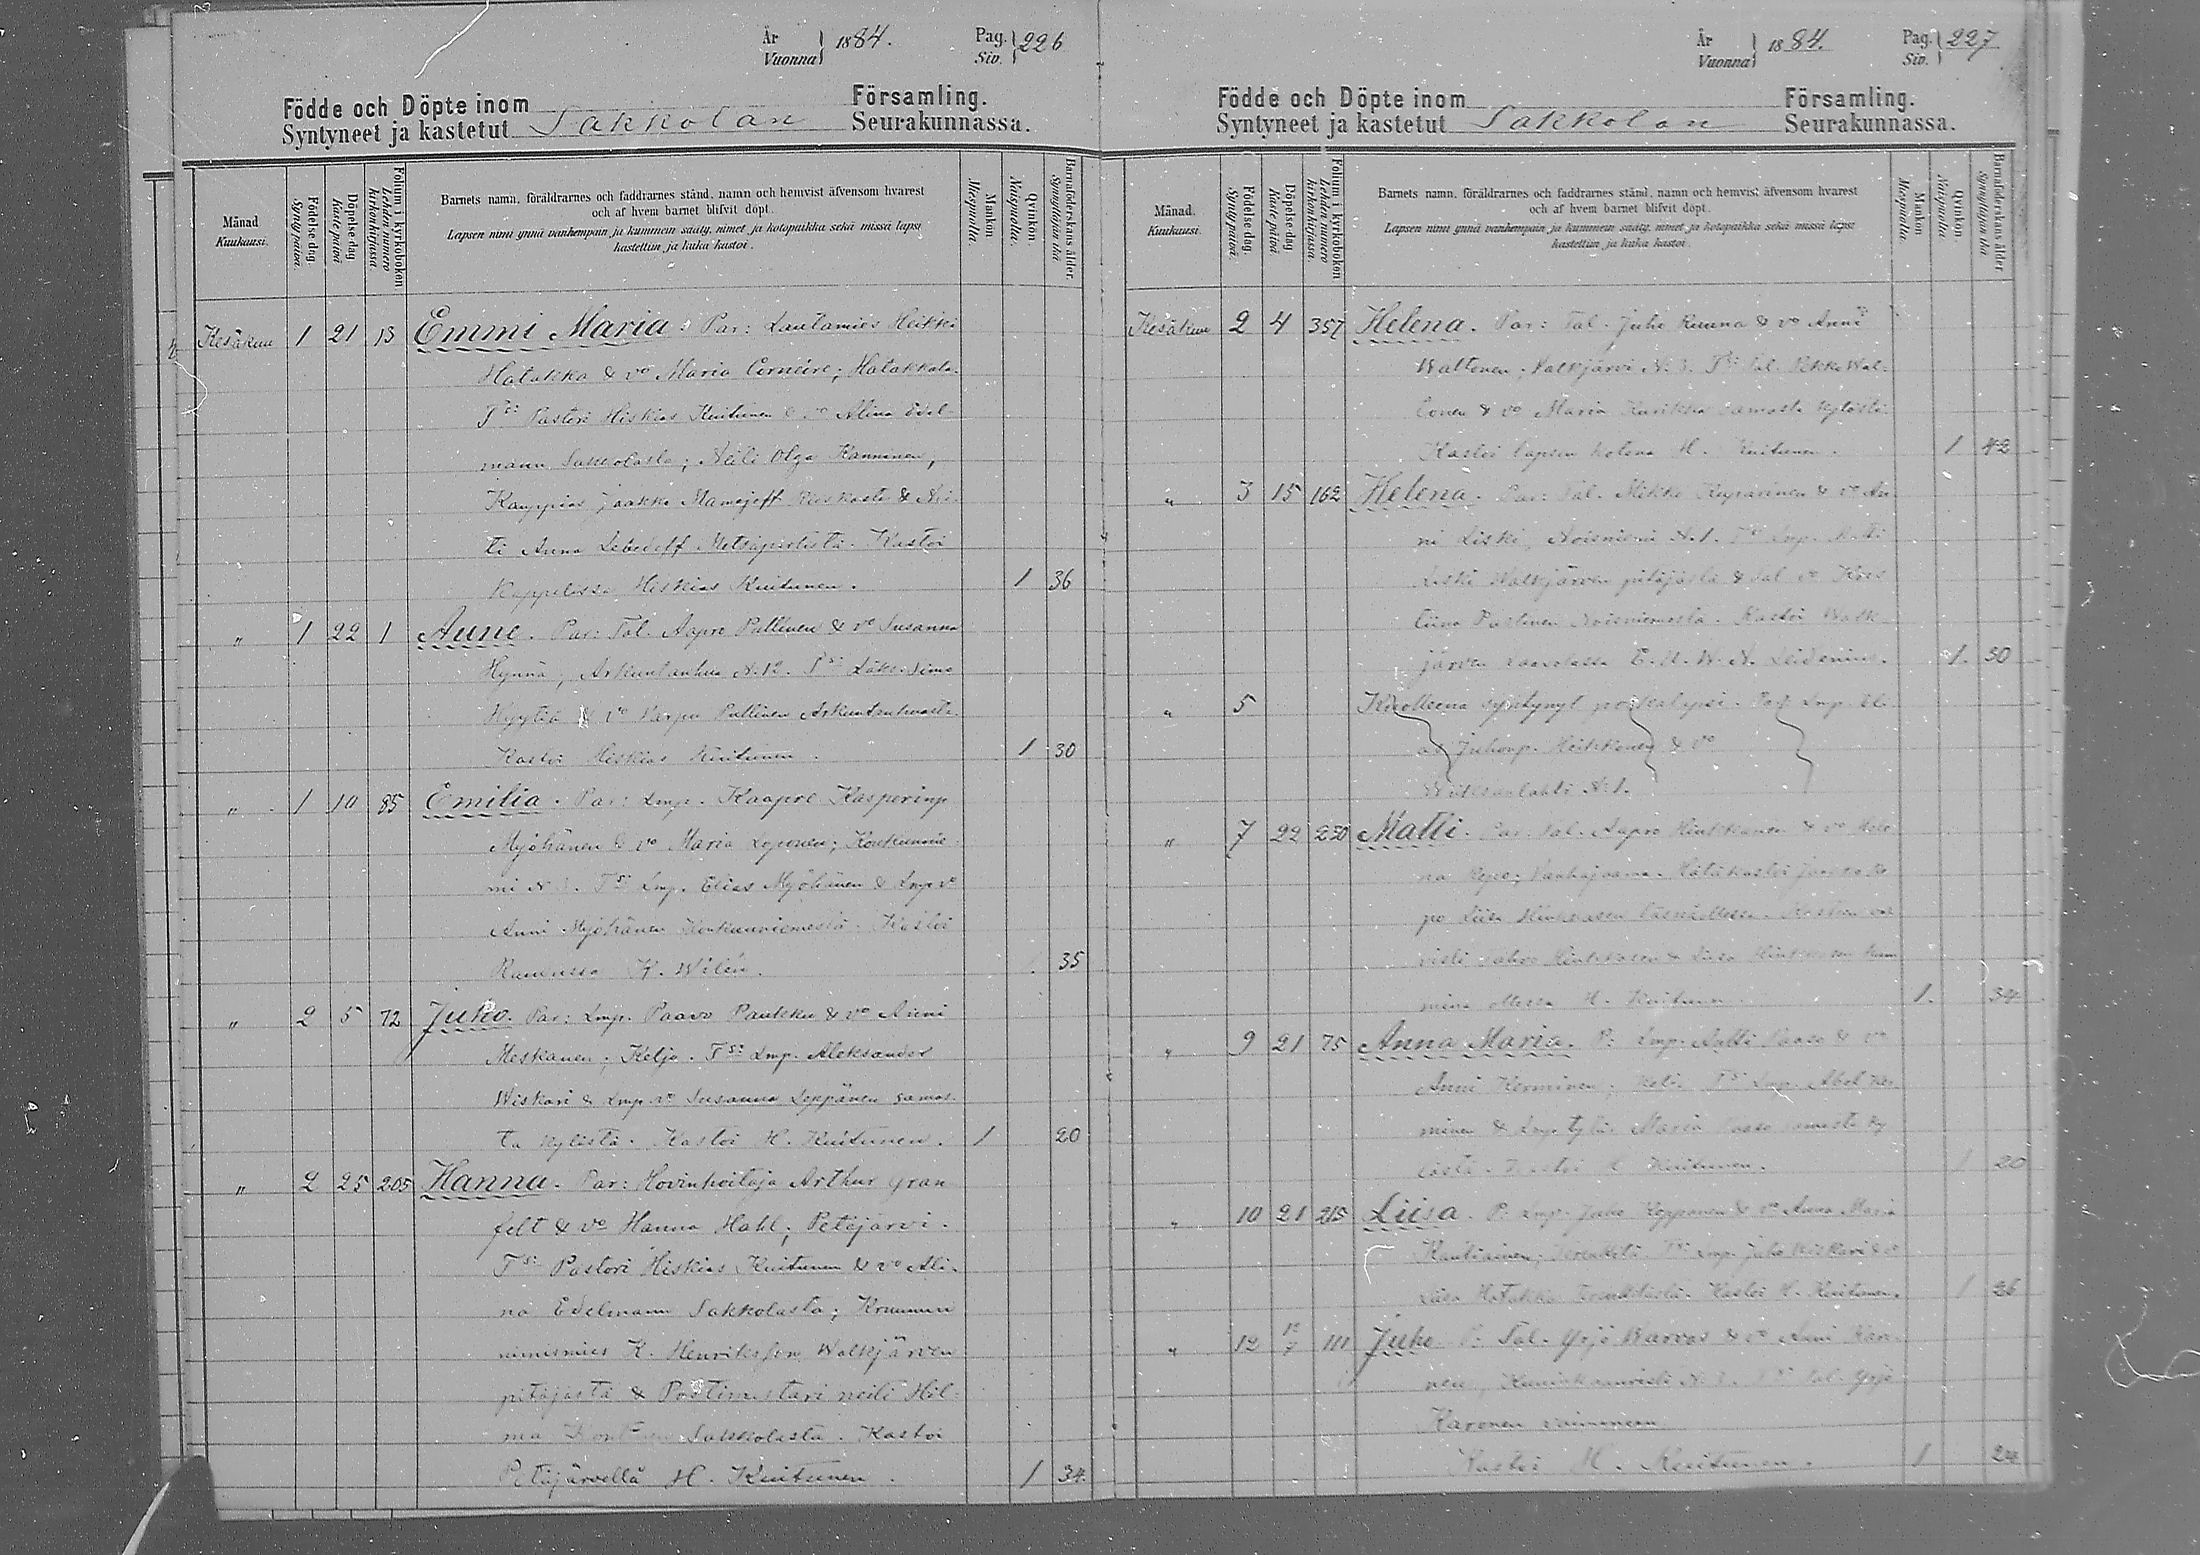 År
Vuonna } 1884.
Pag.
Siv. } 226
Födde och Döpte inom Församling.
Syntyneet ja kastetut Sakkolan Seurakunnassa.
Månad Kuukausi.
Födelse dag. Syntypäivä.
Döpelse dag. Kaste päivä
Folium i kyrkoboken Lehden numero kirkonkirjassa
Barnets namn, föräldrarnes och faddrarnes stånd, namn och hemvist äfvensom hvarest
och af hvem barnet blifvit döpt.
Lapsen nimi ynnä vanhempain ja kummein sääty, nimet ja kotopaikka sekä missä lapsi
kastettiin ja kuka kastoi.
Mankön. Miespuolia.
Qvinkön. Naispuolia.
Barnaföderskans ålder. Synnyttäjän ikä
Kesäkuu 1 21 13 Emmi Maria: Par: Lautamies Heikki
Hatakka & vo Maria Corneire; Hatakkala.
Tsi Pastori Hiskias Kuitunen & vo Alina Edel-
mann Sakkolasta; Neiti Olga Kanninen,
Kauppias Jaakko Mamojeff & Nei-
ti Anna Lebedeff Metsäpirtistä. Kastoi
Kappelissa Hiskias Kuitunen. 1 36
" 1 22 1 Aune. Par: Tal. Aapro Pullinen & vo Susanna
Hynnä; Arkuntanhua N. 12. Tsi
Hyytiä & vo Varpu Pullinen Arkuntanhuasta.
Kastoi Hiskias Kuitunen. 1 30
" 1 10 85 Emilia. Par: Lmp. Kaapre Kasperinp
Myöhänen & vo Maria Loponen; Konkunnie-
mi N. 3. Tsi Lmp. Elias Myöhänen & Lmp. vo
Anni Myöhänen Konkunniemestä. Kastoi
K. Wilén. 35
" 2 5 72 Juho. Par: Lmp. Paavo Paukku & vo Anni
Meskanen; Kelja. Tsi Lmp. Aleksander
Wiskari & Lmp. vo Susanna Leppänen samas-
ta kylästä. Kastoi H. Kuitunen. 1 20
" 2 25 205 Hanna. Par: Hovinhoitaja Arthur Gran
felt & vo Hanna Hahl; Petäjärvi.
Tsi Pastori Hiskias Kuitunen & vo Ali-
na Edelmann Sakkolasta; Kruunun
nimismies K. Henriksson Walkjärven
pitäjästä & Postimestari neiti Hil-
ma Sakkolasta. Kastoi
Petäjärvellä H. Kuitunen. 1 34.
År
Vuonna } 1884.
Pag.
Siv. } 227
Födde och Döpte inom Församling.
Syntyneet ja kastetut Sakkolan Seurakunnassa.
Månad. Kuukausi.
Födelse dag. Syntypäivä
Döpelse dag. Kaste päivä
Folium i kyrkoboken Lehden numero kirkonkirjassa.
Barnets namn, föräldrarnes och faddrarnes stånd, namn och hemvist äfvensom hvarest
och af hvem barnet blifvit döpt.
Lapsen nimi ynnä vanhempain ja kummein sääty, nimet ja kotopaikka sekä missä lapsi
kastettiin ja kuka kastoi.
Mankön. Miespuolia.
Qvinkön. Naispuolia
Barnaföderskans ålder. Synnyttäjän ikä
Kesäkuu 2 4 357 Helena. Par: Tal. Juho Ruuna & vo Anni
Waltonen; Valkjärvi N. 3. Tsi Tal. Pekka Wal-
tonen & vo Maria Kurikka samasta kylästä.
Kastoi lapsen kotona H. Kuitunen. 1 42
" 3 15 162 Helena. Par: Tal. Mikko Kuparinen & vo An-
ni Liski, Noisniemi N. 1. Tsi Lmp. Matti
Liski Walkjärven pitäjästä & tal vo
Noisniemestä. Kastoi Walk-
järven E. A. W. N. Leidenius. 1. 30
" 5 Kuolleena syntynyt poikalapsi. Par. Lmp.
Juhonp. Heikkonen & vo
N. 1.
" 7 22 230 Matti. Par. Tal. Aapro Hinkkanen & vo Hele-
na Repo; Vanhajaama. Hätäkastoi
po Liisa Hinkkasen läsnäollessa. Kasteen vah-
visti Hinkkasen & Liisa Hinkkasen kum-
mina ollessa H. Kuitunen 1. 34
" 9 21 75 Anna Maria. P: Lmp. Antti Paaso & vo
Anni Kerminen. Tsi Lmp. Abel Ker-
minen & Lmp. tytär Maria Paaso samasta ky-
lästä. Kastoi H. Kuitunen. 1 20
" 10 21 215 Liisa. P. Lmp. Juho Repponen & vo Anna Maria
Kautiainen; Tsi Lmp. Juho Kiskari & vo
Liisa Hatakka Kastoi H. Kuitunen. 1 26
" 12 12/7 111 Juho. P: Tal. Yrjö Karvas & vo Anni Karo-
nen, N. 3. Tsi Tal. Yrjö
Karonen vaimoineen
Kastoi H. Kuitunen. 1 24